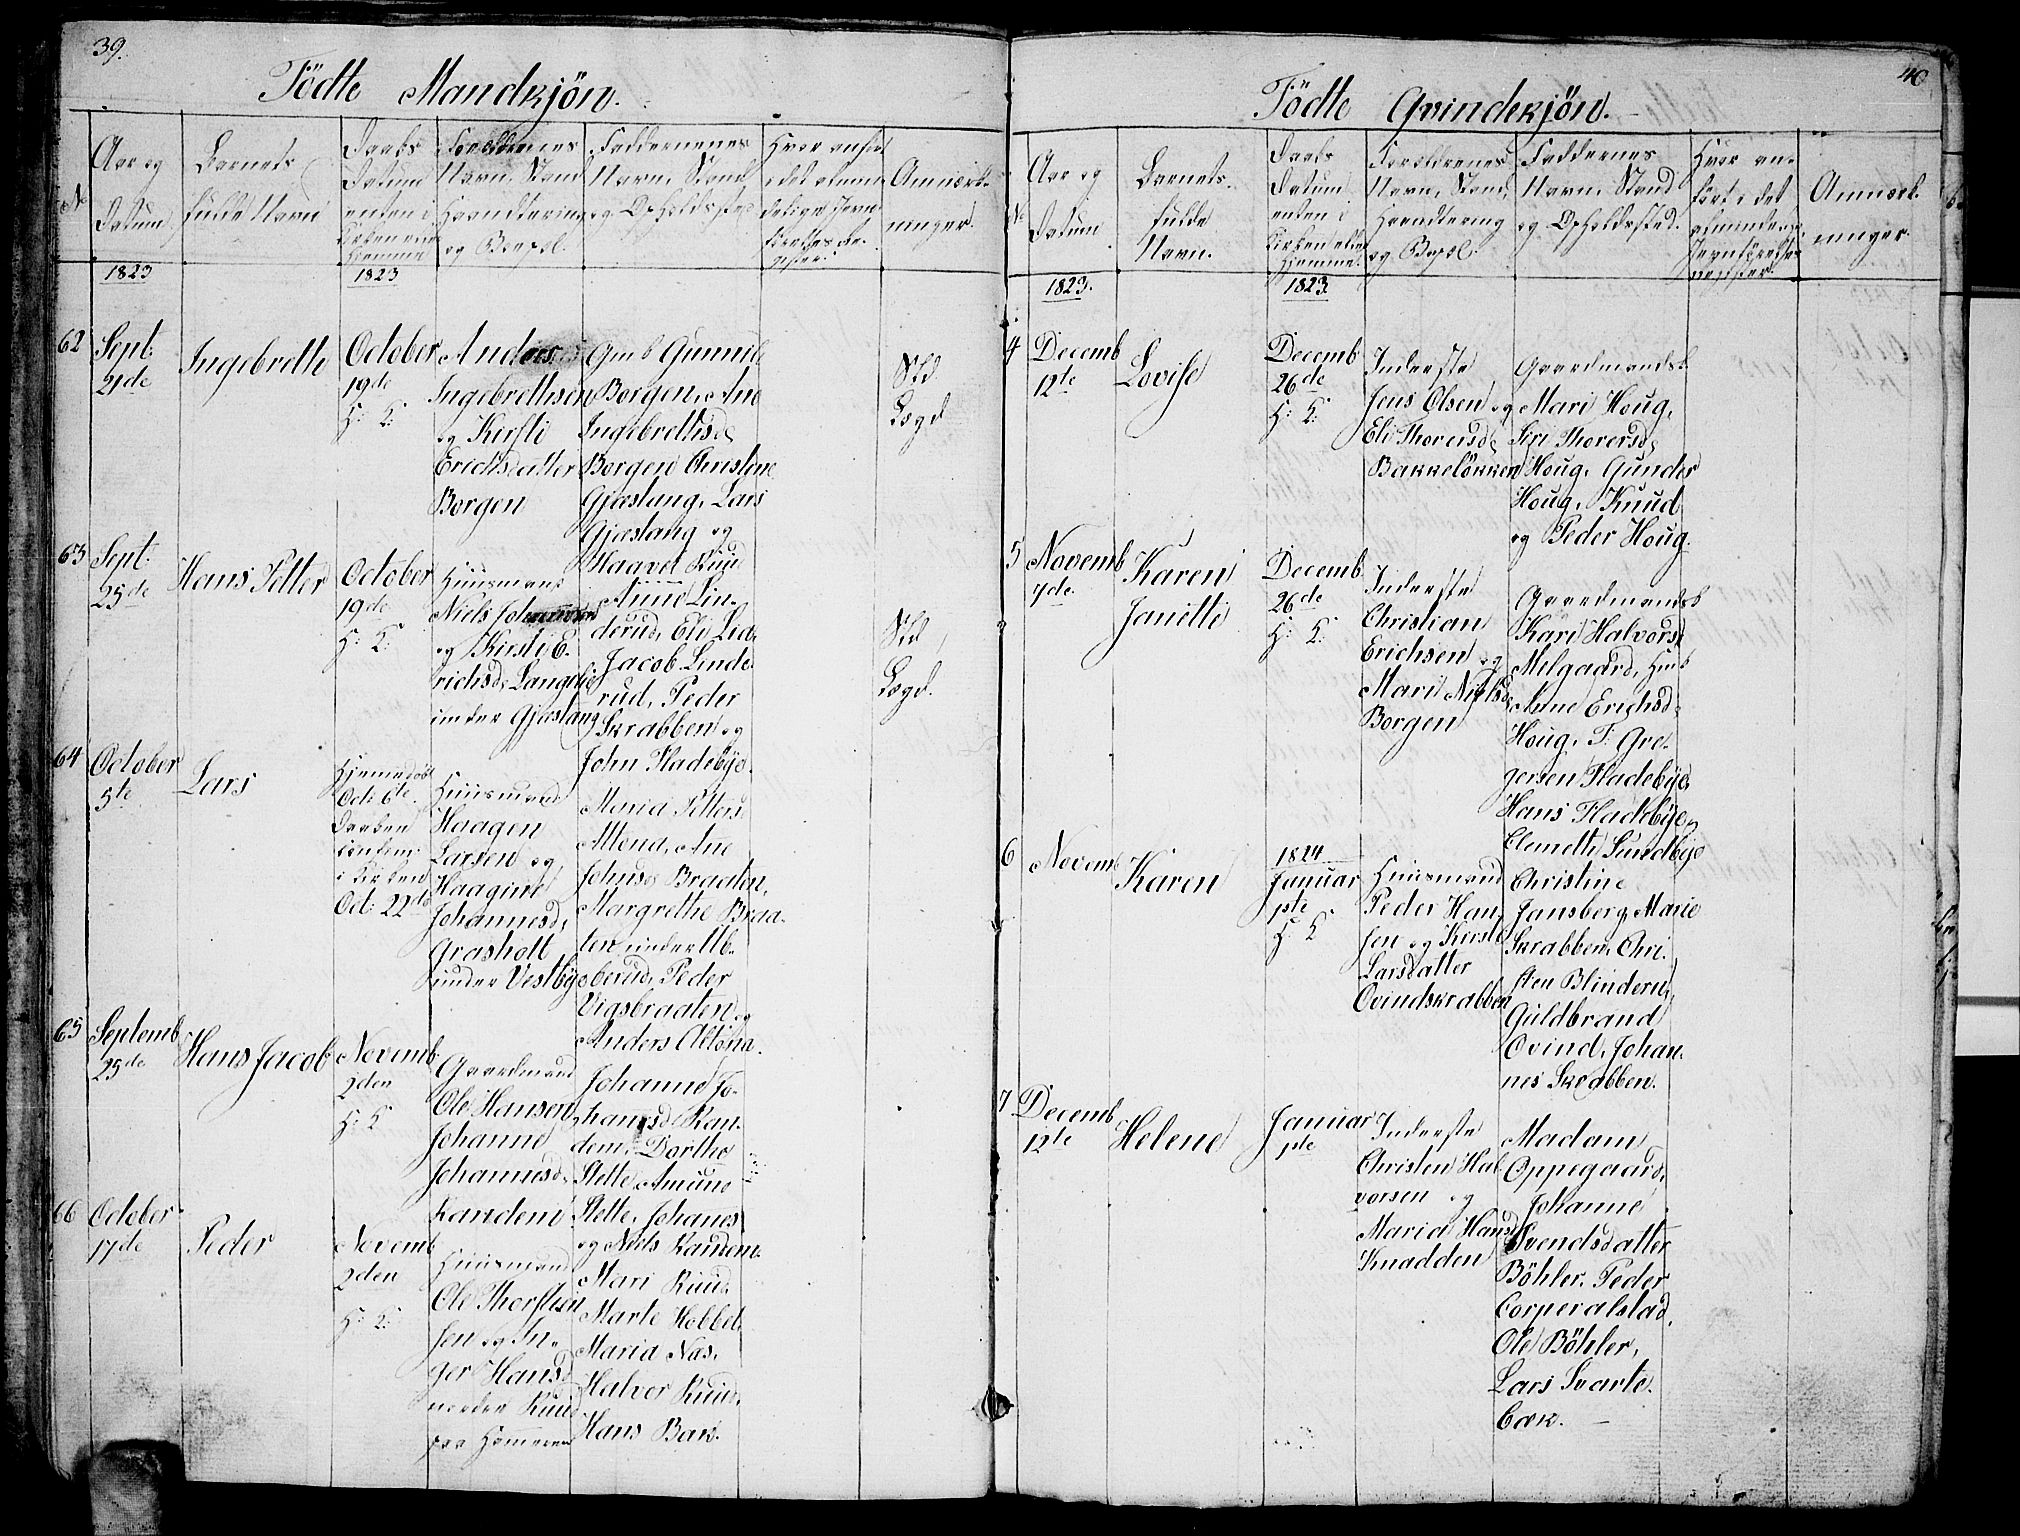 39.
Födte Mandkjön.
N
Aar og
Datum
Barnets
fulde Navn
Daabs
Datum
enten i
Kirken eller
hiemme
Forældrenes
Navn, Stand
Haandtering
og Bopæl.
Faddernenes
Navn, Stand
og Opholdssted
Hvor anført
i det almin
delige Jevn
førelses re-
gister.
Anmærk-
ninger.
1823
1823
62
Sept:
21de
Ingebreth
October
19de
H: K:
Anders
Ingebrethsen
og Kirsti
Erichsdatter
Borgen
Gmb Gunnil
Borgen, Ane
Ingebrethsd
Borgen Christine
Gjæstang, Lars
Gjæstang og
Haavel Ruud
Std
Lægd
63
Sept:
25de
Hans Petter
October
19de
H: K:
Huusmand
Niels Johannesen
og Kirsti E
richsd: Langelie
under Gjæstang
Anne Lin
derud, Eli Lia
Jacob Linde
rud, Peder
Skrabben og
John Fladebye.
Std
Lægd.
64
October
5te
Lars
Hjemmedöbt
Oct: 6te
Daaben
confirm:
i Kirken
Oct: 22de
Huusmand
Haagen
Larsen og
Haagine
Johannesd,
Grasholt
under Vestbye
Maria Petters
Altena, Ane
Johnsd Braaten,
Margrethe Braa-
ten under Ab-
oberud, Peder
Vigsbraaten og
Anders Altona.
65
Septemb
25de
Hans Jacob
Novemb
2den
H: K
Gaardmand
Ole Hansen
Johanne
Johannesd.
Randem
Johanne Jo-
hansd Ran
dem, Dorthe
Stette, Amund
Stette, Johanes
og Niels Randem.
66
October
17de
Peder
Novemb
2den
H: K:
Huusmand
Ole Thorsten
sen og In-
ger Hansd
norden Ruud
paa Hameren
Mari Ruud
Marte Kobbel
Maria Nas,
Halvor Ruud,
Hans Bak.
40
Födte Qvindekjön.
No
Aar og
Datum.
Barnets
fulde
Navn.
Daabs
Datum
enten i
Kirken eller
hjemme.
Forældrenes
Navn, Stand,
Haandtering
og Bopæl.
Faddernes
Navn, Stand
og Opholdssted.
Hvor an-
ført i det
almindelige
Jevnförelses
register.
Anmærk-
ninger.
1823.
1823
4
Decemb
12te
Lovise
Decemb
26de
H: K:
Inderste
Jens Olsen og
Eli Thorersd,
Bakkelökken
Gaardmandsk
Mari Houg,
Siri Thorersd,
Houg, Gunder
Houg, Knud
og Peder Houg.
5
Novemb
7de
Karen
Janette
Decemb
26de
H: K:
Inderste
Christian
Erichsen og
Mari Nielsd
Borgen
Gaardmandsk
Kari Halvors
Melgaard, Huus
Anne Erichsd.
Houg, T: Gre-
gersen Fladebye,
Hans Fladebye og
Clemette Sundbye
6
Novemb
Karen
1824
Januar
1ste
H K
Huusmand
Peder Han
sen og Kirsti
Larsdatter
Ovindskrabben
Christine
Jansberg, Marie
Skrabben, Chri-
sten Blindern,
Guldbrand
Ovind, Johan-
nes Skrabben.
7
Decemb
12te
Helene
Januar
1ste
Inderste
Christen Hal
vorsen og
Maria Hansd
Knadden
Madam
Oppegaard,
Johanne
Svendsdatter
Böhler, Peder
Corperalstad,
Ole Böhler,
Lars Svarte-
bæk. —